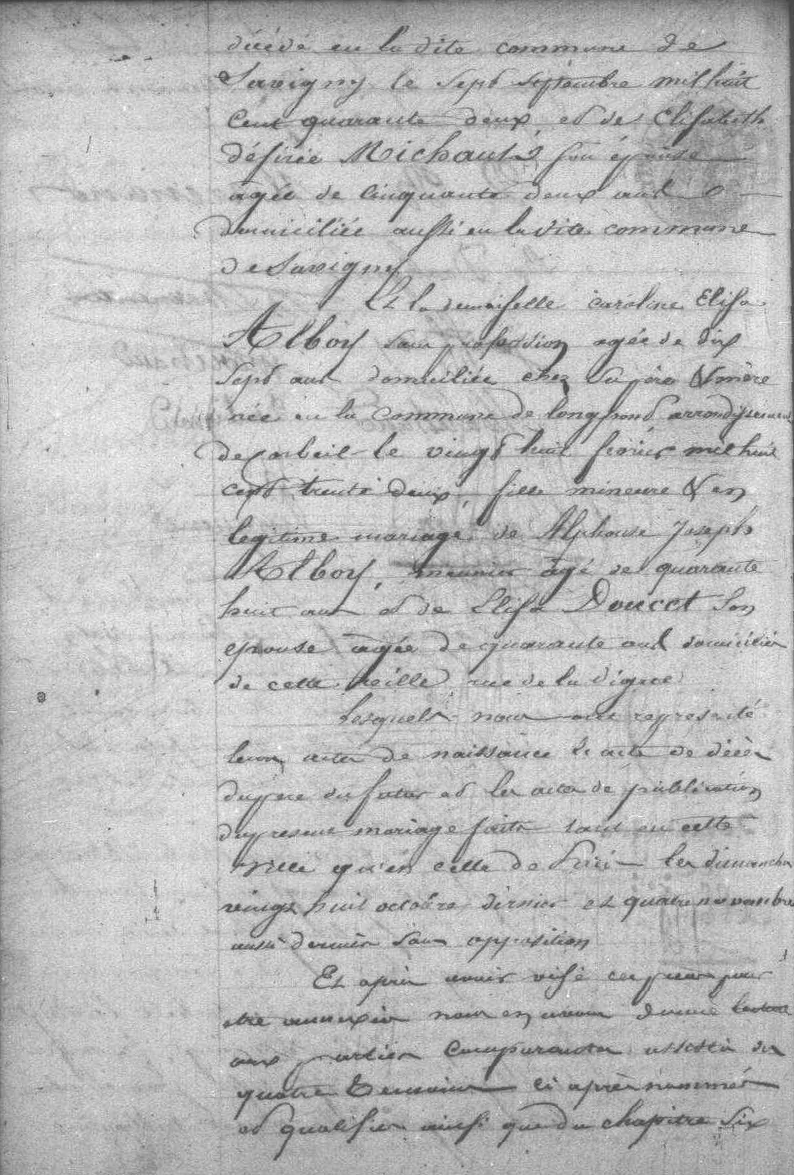 décédé en la dite commune de
Savigny le Sept Septembre mil huit
Cent quarante deux, et de Elisabeth
désirée Michault, son épouse
agée de cinquante deux ans
domiciliée aussi en la dite commune
de Savigny
Et la demoiselle caroline Elisa
Alboy sans profession agée de dix
Sept ans domiciliée chez ses père & mère
née en la commune de longpont arrondissement
de corbeil le vingt huit février mil huit
cent trente deux, fille mineure & en
legitime mariage de Alphonse Joseph
Alboy, meunier agé de quarante
huit ans et de Elisa Doucet Son
epouse agée de quarante ans domiciliés
de cette ville rue de la Vigne
Lesquels nous ont representé
leurs actes de naissance le acte de décès
du pere du futur et les actes de publication
du present mariage faits tant en cette
ville qu'en celle de les dimanches
vingt huit octobre dernier et quatre novembre
aussi dernier sans opposition
Et après avoir visé ces pieces pour
etre annexées nous en avons donné lecture
aux parties comparantes assistées des
quatre temoins ci après nommés
et qualifiés ainsi que du chapitre Six